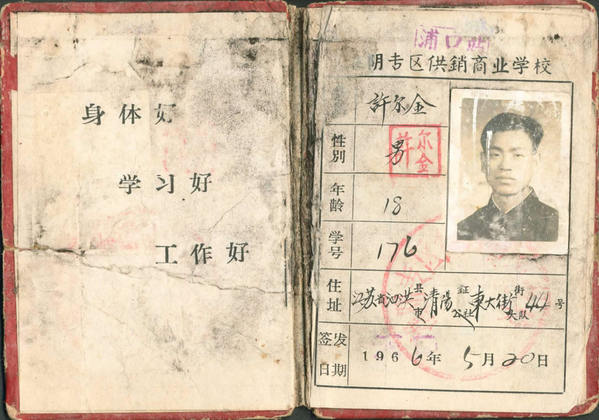 身体好
学习好
工作好
浦口
阴专区供銷商业学校
許尔金
性别 男
許尔金
年龄 18
学号 176
住址 江苏省泗洪县市清陽公社東大街街大队44号
签发日期 1966年5月20日